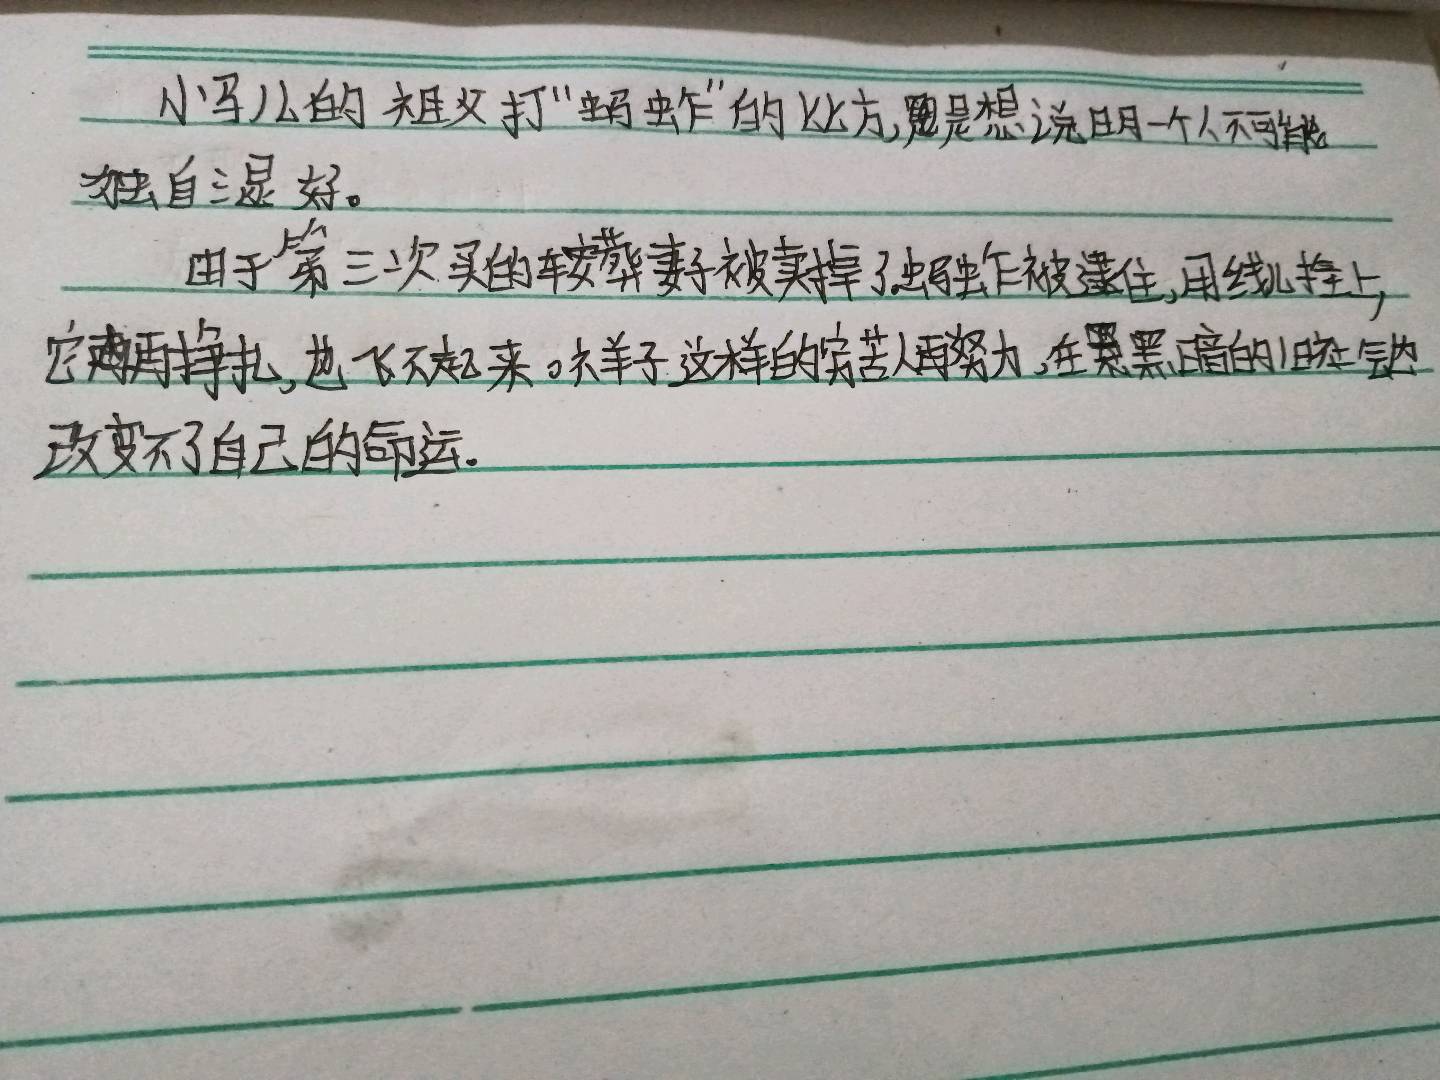 小马儿的祖父打“蚂蚱”的比方,是想说明一个人不可能
独自混好。
由于第三次买的车安葬妻子被卖掉了。蚂蚱被逮住,用线儿拴上,
它再挣扎,也飞不起来。祥子这样的穷苦人再努力,在黑暗的旧社会
改变不了自己的命运.